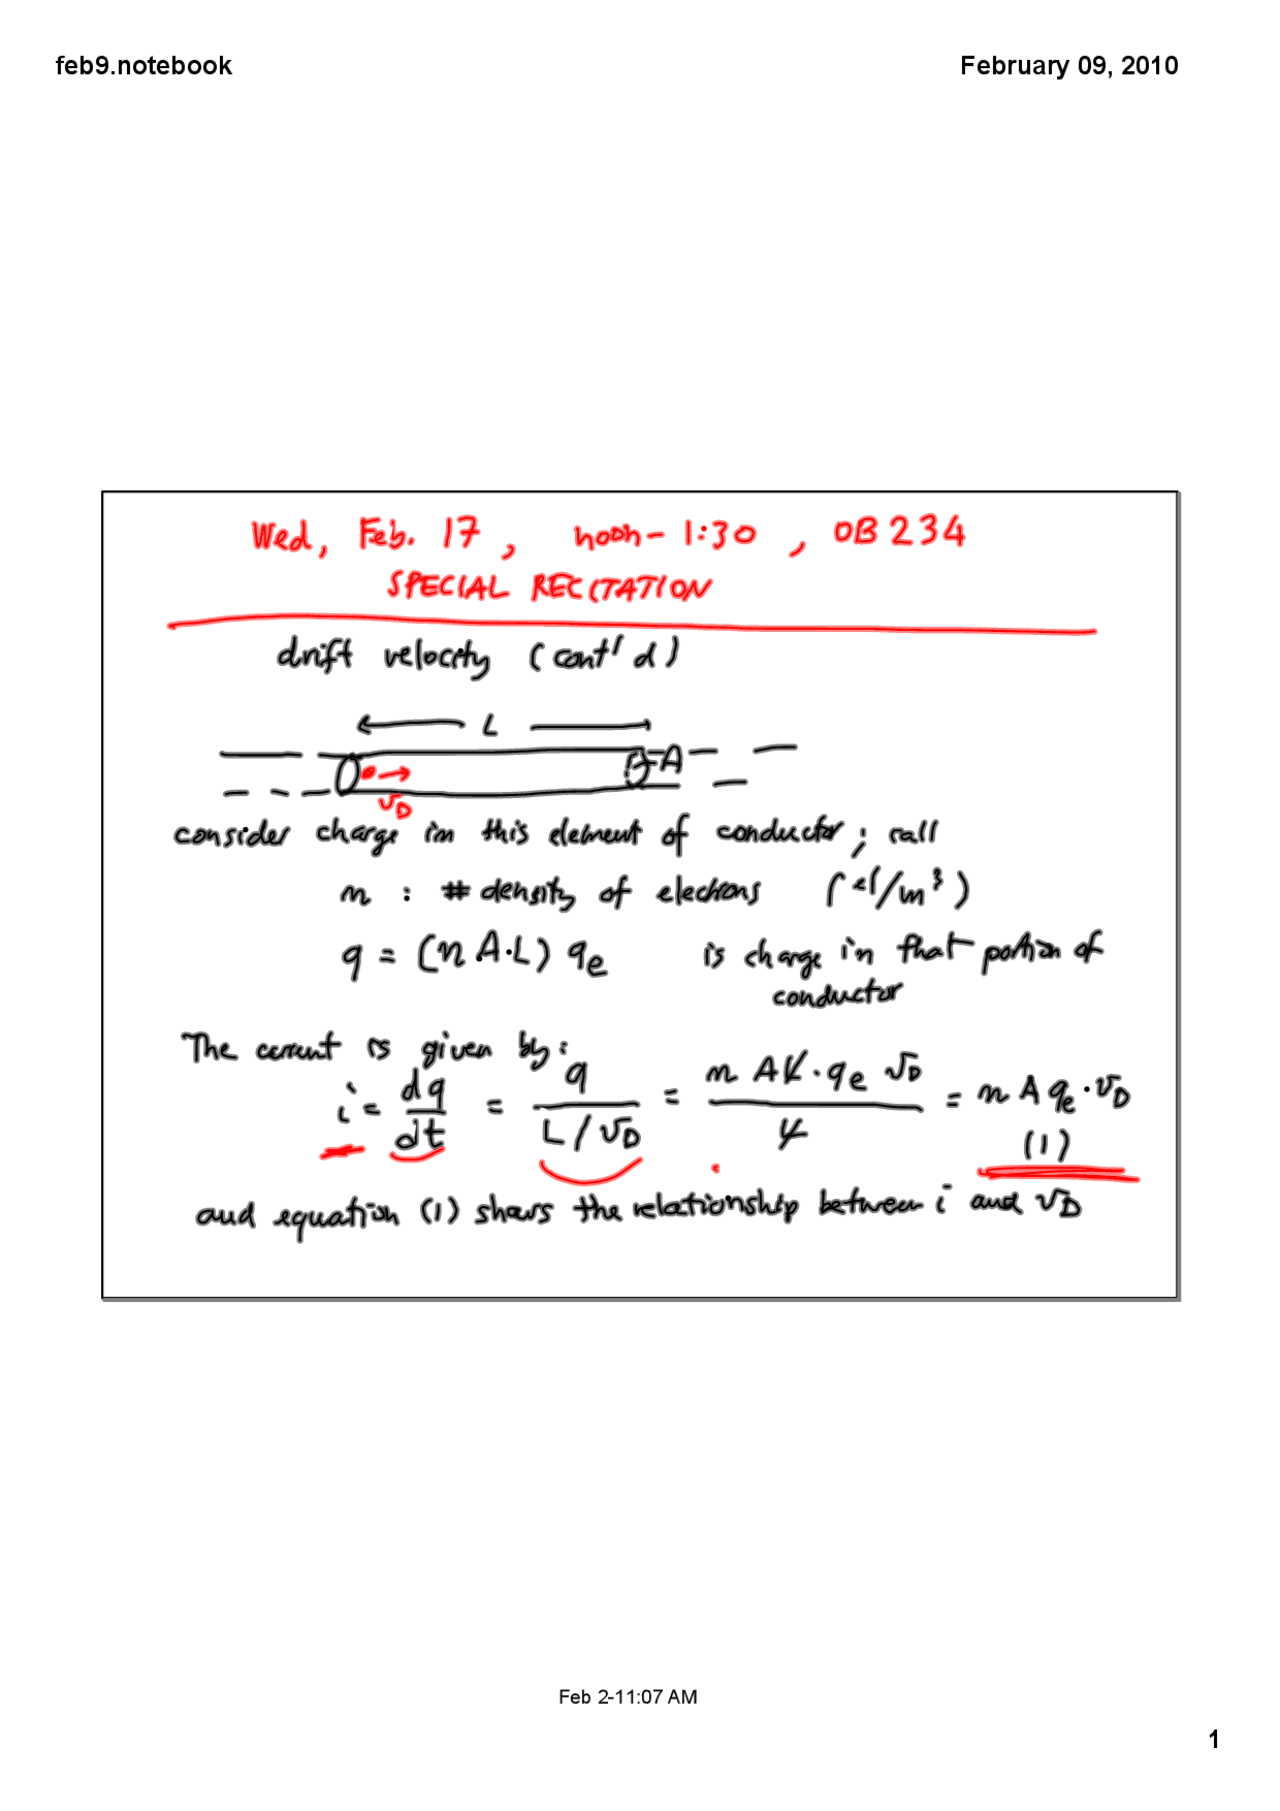 feb9.notebook February 09, 2010
Wed, Feb. 17, noon - 1:30, OB 234
SPECIAL RECITATION
drift velocity (cont'd)
L
A
v_D
consider charge in this element of conductor; call
n : # density of electrons (el/m³)
q = (n A·L) q_e is charge in that portion of
conductor
The current is given by:
i = dq/dt = q/(L/v_D) = n A L · q_e v_D / L = n A q_e · v_D
(1)
and equation (1) shows the relationship between i and v_D
Feb 2-11:07 AM
1